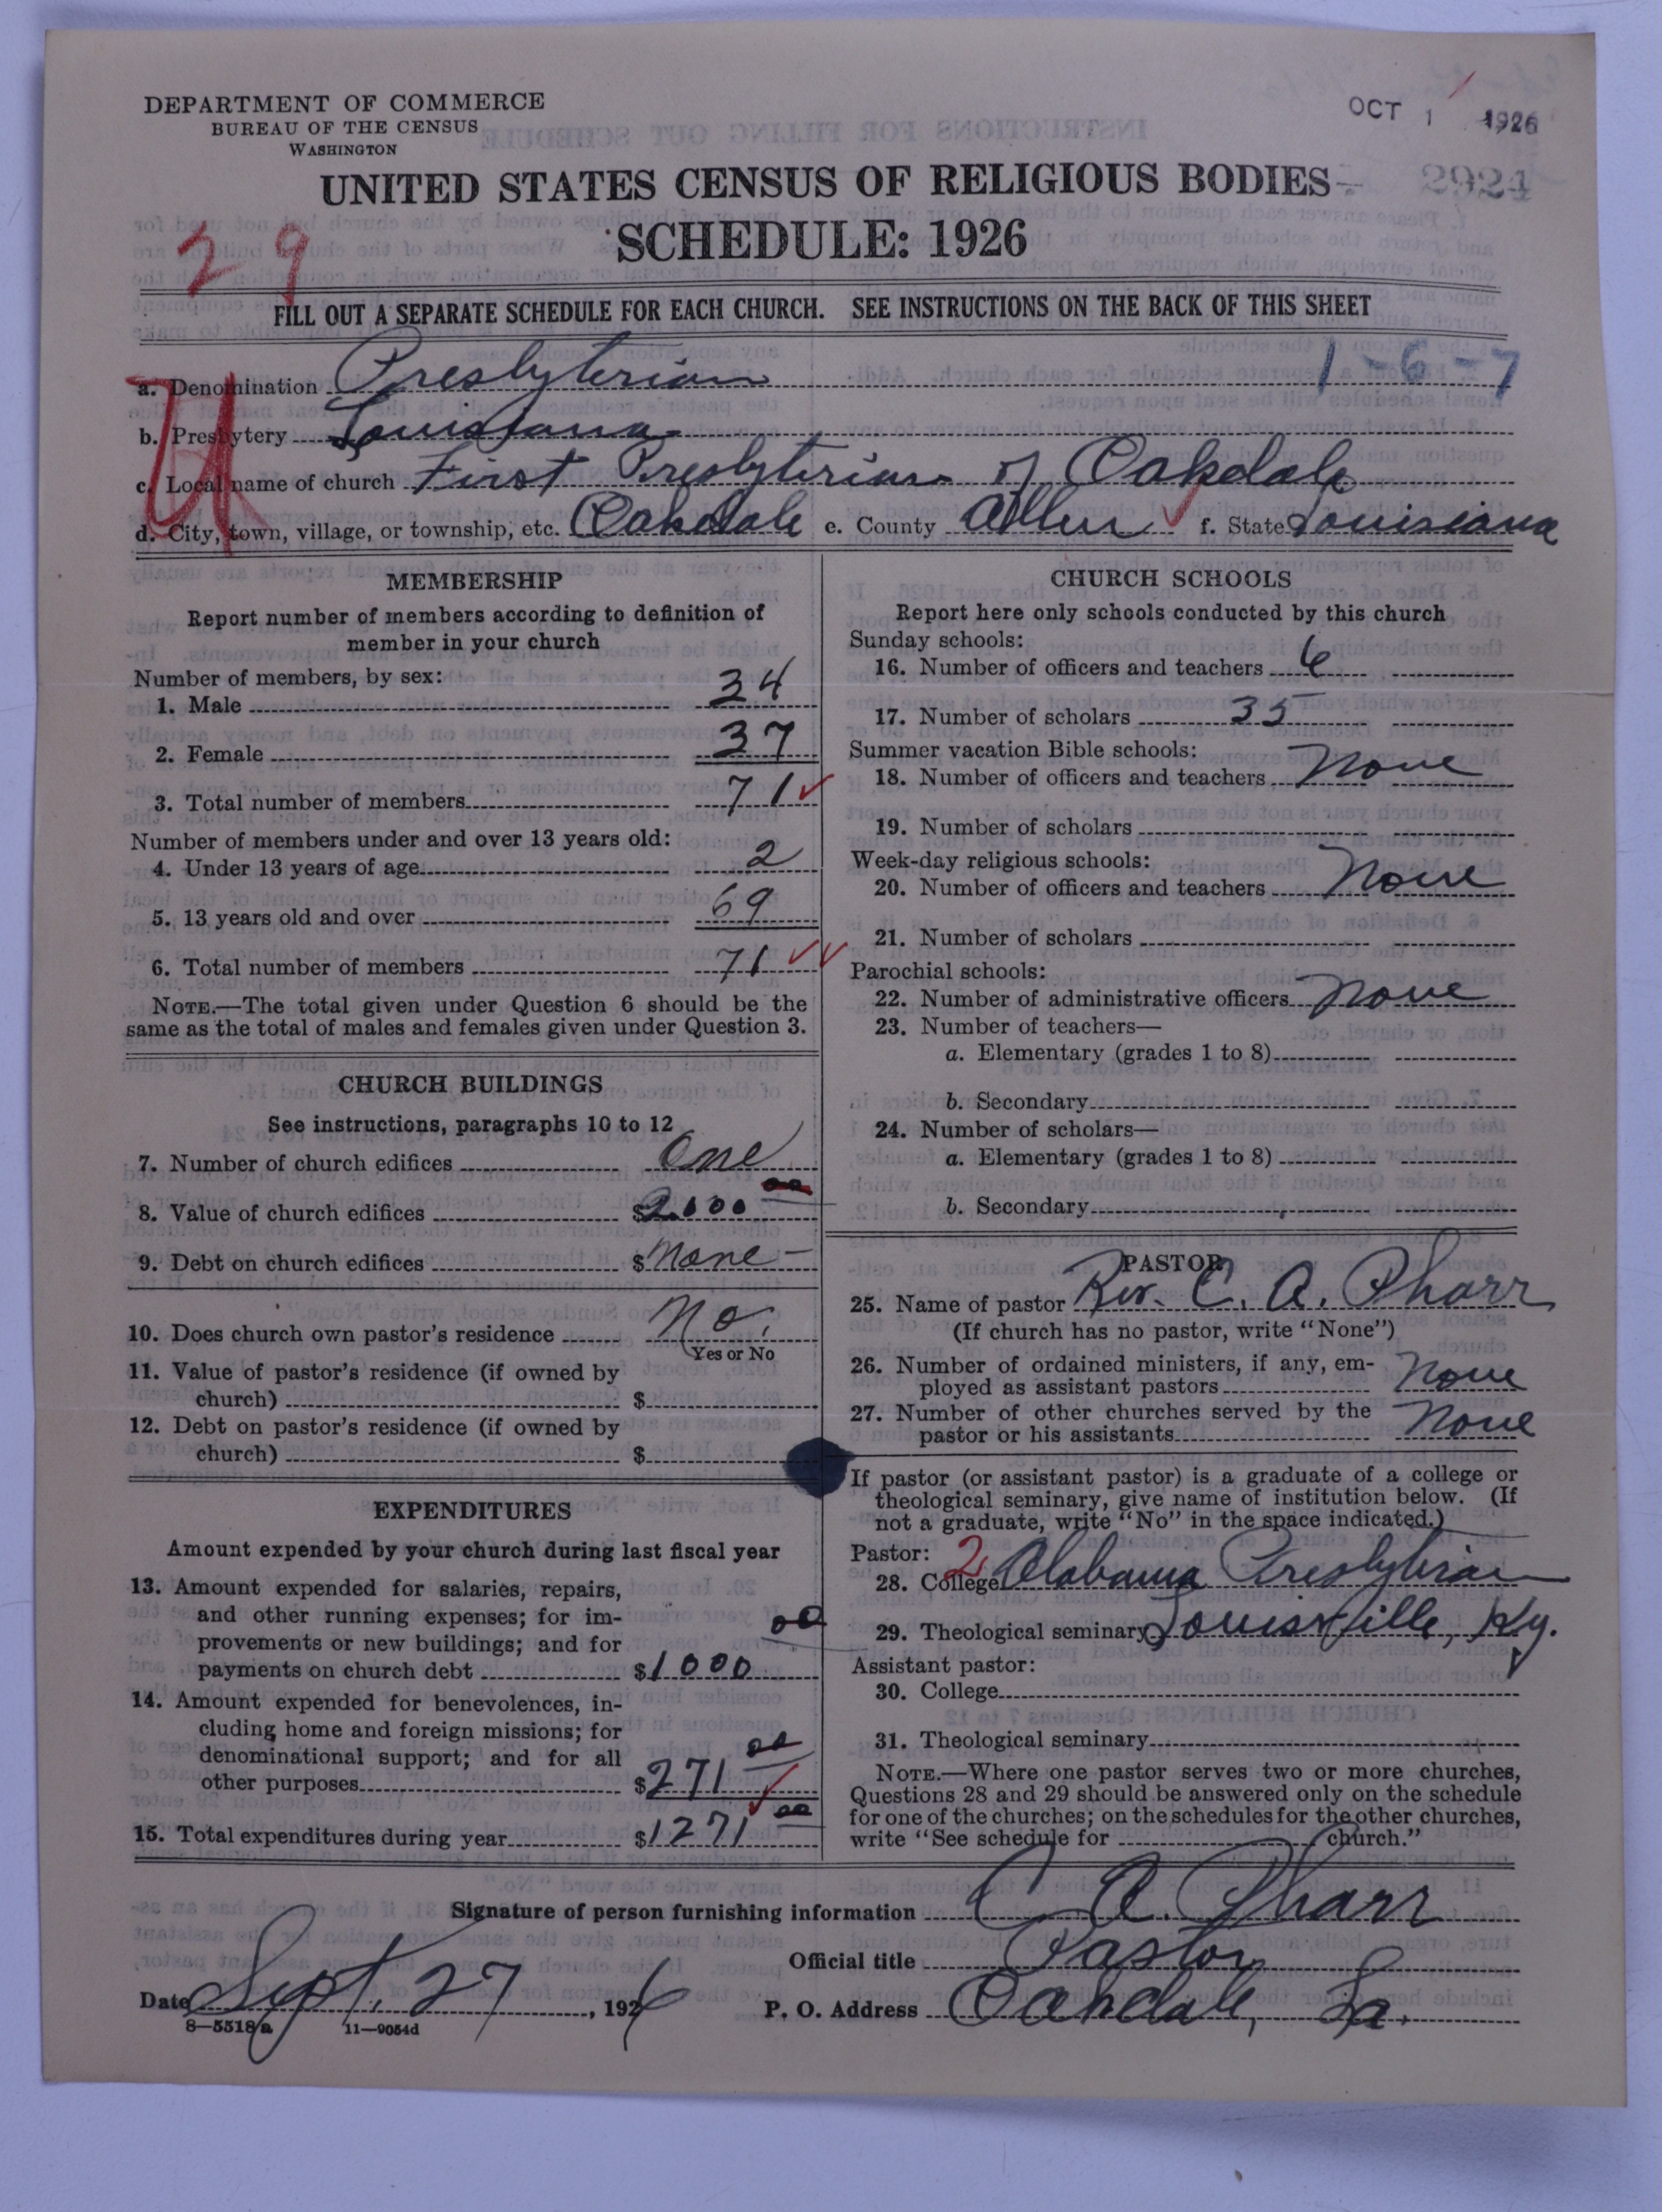 DEPARTMENT OF COMMERCE
BUREAU OF THE CENSUS
WASHINGTON
OCT 1 1926
UNITED STATES CENSUS OF RELIGIOUS BODIES
2924
SCHEDULE: 1926
29
FILL OUT A SEPARATE SCHEDULE FOR EACH CHURCH. SEE INSTRUCTIONS ON THE BACK OF THIS SHEET
1-6-7
a. Denomination Presbyterian
b. Presbytery Louisiana
c. Local name of church First Presbyterian of Oakdale
d. City, town, village, or township, etc. Oakdale e. County Allen f. State Louisiana
U
MEMBERSHIP
Report number of members according to definition of
member in your church
Number of members, by sex:
1. Male 34
2. Female 37
3. Total number of members 71
Number of members under and over 13 years old:
4. Under 13 years of age 2
5. 13 years old and over 69
6. Total number of members 71
NOTE.—The total given under Question 6 should be the
same as the total of males and females given under Question 3.
CHURCH BUILDINGS
See instructions, paragraphs 10 to 12
7. Number of church edifices One
8. Value of church edifices $2000 00
9. Debt on church edifices $None
10. Does church own pastor's residence No.
Yes or No
11. Value of pastor's residence (if owned by
church) $
12. Debt on pastor's residence (if owned by
church) $
EXPENDITURES
Amount expended by your church during last fiscal year
13. Amount expended for salaries, repairs,
and other running expenses; for im-
provements or new buildings; and for
payments on church debt $1000 00
14. Amount expended for benevolences, in-
cluding home and foreign missions; for
denominational support; and for all
other purposes $271 00
15. Total expenditures during year $1271 00
CHURCH SCHOOLS
Report here only schools conducted by this church
Sunday schools:
16. Number of officers and teachers 6
17. Number of scholars 35
Summer vacation Bible schools:
18. Number of officers and teachers None
19. Number of scholars
Week-day religious schools:
20. Number of officers and teachers None
21. Number of scholars
Parochial schools:
22. Number of administrative officers None
23. Number of teachers—
a. Elementary (grades 1 to 8)
b. Secondary
24. Number of scholars—
a. Elementary (grades 1 to 8)
b. Secondary
PASTOR
25. Name of pastor Rev. C. A. Pharr
(If church has no pastor, write "None")
26. Number of ordained ministers, if any, em-
ployed as assistant pastors None
27. Number of other churches served by the
pastor or his assistants None
If pastor (or assistant pastor) is a graduate of a college or
theological seminary, give name of institution below. (If
not a graduate, write "No" in the space indicated.)
Pastor: 2
28. College Alabama Presbyterian
29. Theological seminary Louisville, Ky.
Assistant pastor:
30. College
31. Theological seminary
NOTE.—Where one pastor serves two or more churches,
Questions 28 and 29 should be answered only on the schedule
for one of the churches; on the schedules for the other churches,
write "See schedule for church."
Signature of person furnishing information C. A. Pharr
Official title Pastor
Date Sept. 27, 1926 P. O. Address Oakdale, La.
8—5518 a 11—9054d